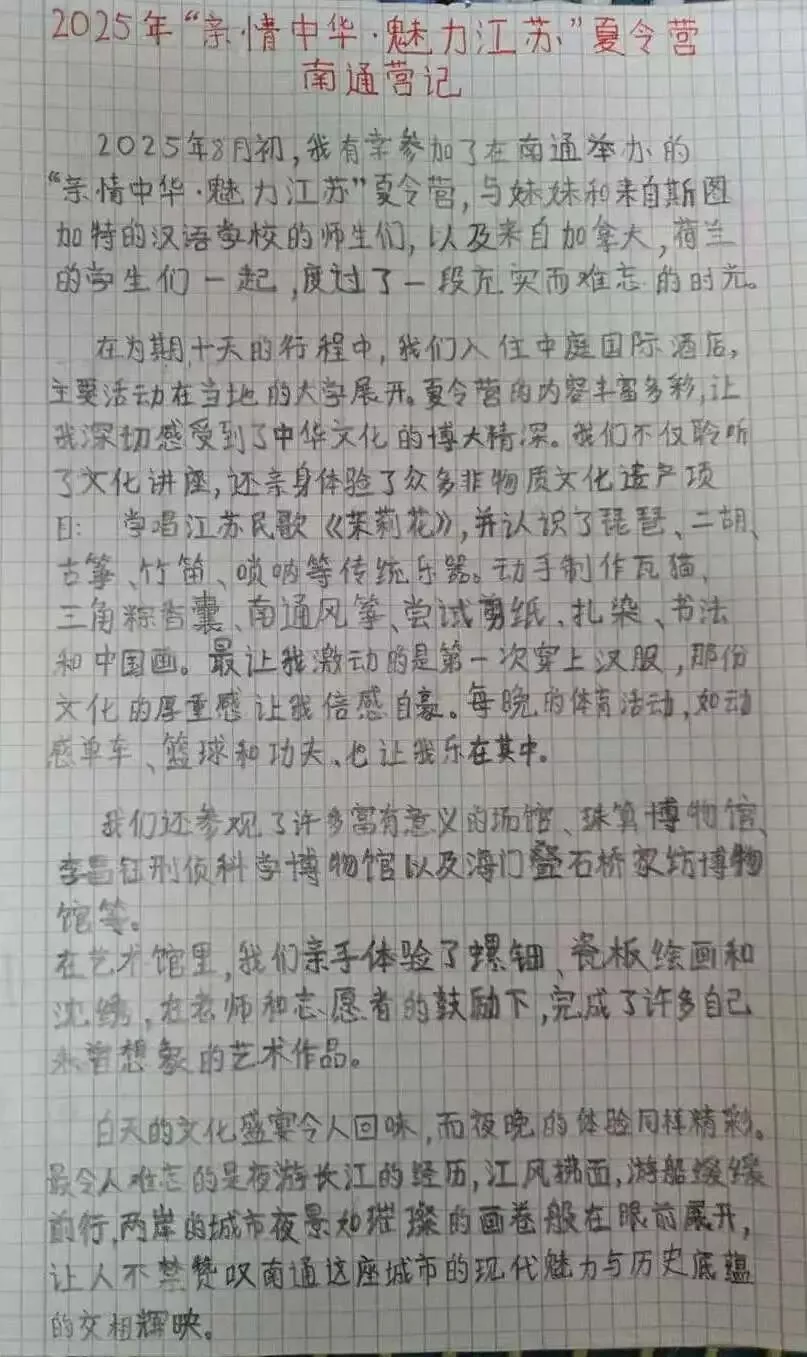 2025年“亲情中华·魅力江苏”夏令营
南通营记
2025年8月初，我有幸参加了在南通举办的
“亲情中华·魅力江苏”夏令营，与妹妹和来自斯图
加特的汉语学校的师生们，以及来自加拿大，荷兰
的学生们一起，度过了一段充实而难忘的时光。
在为期十天的行程中，我们入住中庭国际酒店，
主要活动在当地的大学展开。夏令营的内容丰富多彩，让
我深切感受到了中华文化的博大精深。我们不仅聆听
了文化讲座，还亲身体验了众多非物质文化遗产项
目：学唱江苏民歌《茉莉花》，并认识了琵琶、二胡、
古筝、竹笛、唢呐等传统乐器。动手制作瓦猫、
三角粽香囊、南通风筝、尝试剪纸、扎染、书法
和中国画。最让我激动的是第一次穿上汉服，那份
文化的厚重感让我倍感自豪。每晚的体育活动，如动
感单车、篮球和功夫、也让我乐在其中。
我们还参观了许多富有意义的场馆、珠算博物馆、
李昌钰刑侦科学博物馆以及海门叠石桥家纺博物
馆等。
在艺术馆里，我们亲手体验了螺钿、瓷板绘画和
沈绣，在老师和志愿者的鼓励下，完成了许多自己
未曾想象的艺术作品。
白天的文化盛宴令人回味，而夜晚的体验同样精彩。
最令人难忘的是夜游长江的经历，江风拂面，游船缓缓
前行，两岸的城市夜景如璀璨的画卷般在眼前展开，
让人不禁赞叹南通这座城市的现代魅力与历史底蕴
的交相辉映。